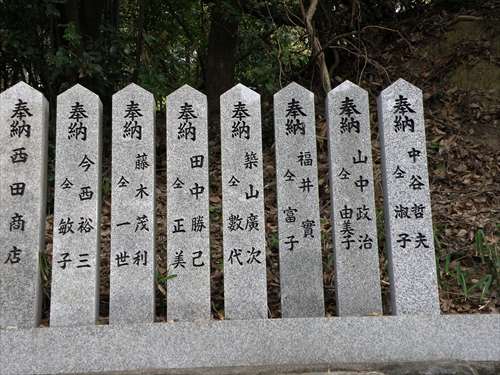 奉納
中谷哲夫
仝 淑子
奉納
山中政治
仝 由美子
奉納
福井實
仝 富子
奉納
築山廣次
仝 數代
奉納
田中勝己
仝 正美
奉納
藤木茂利
仝 一世
奉納
今西裕三
仝 敏子
奉納
西田商店